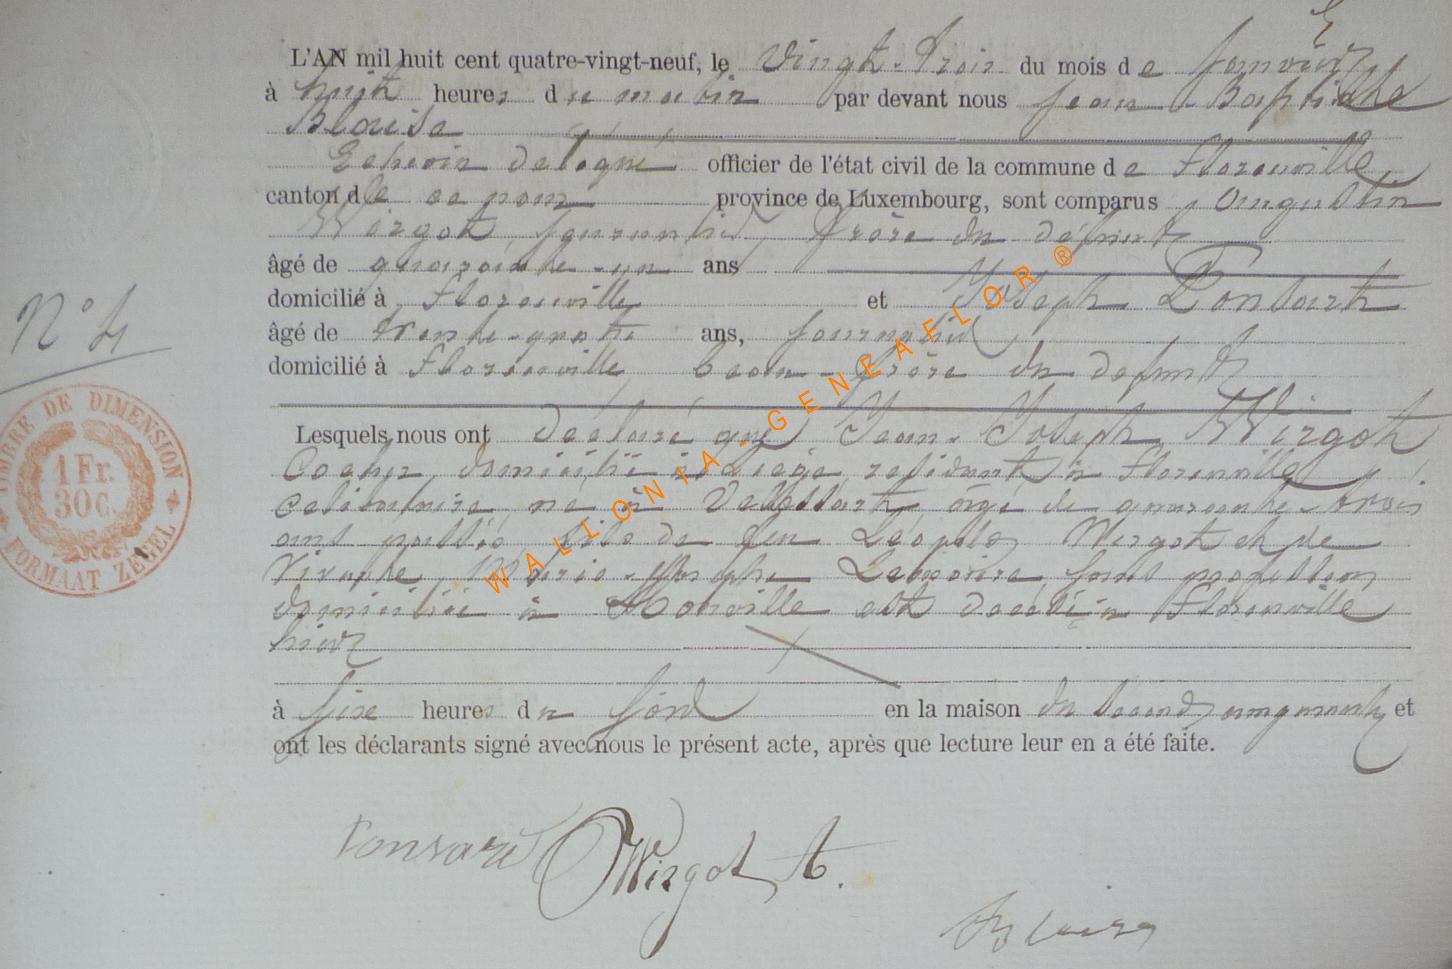 L'AN mil huit cent quatre-vingt-neuf, le vingt-trois du mois de Janvier
à huit heures du matin par devant nous Jean-Baptiste
Blaise
Echevin délégué officier de l'état civil de la commune de Florenville
canton de ce nom province de Luxembourg, sont comparus Augustin
Wirgot, journalier, frère du défunt
âgé de quarante-un ans
domicilié à Florenville et Joseph Ponsart
âgé de trente-quatre ans, journalier
domicilié à Florenville beau-frère du défunt
N° 4
TIMBRE DE DIMENSION
1 Fr.
30C.
FORMAAT ZEGEL
Lesquels nous ont déclaré que Jean-Joseph Wirgot
Cocher domicilié à Liège, résidant à Florenville
célibataire, né à âgé de quarante-trois
ans passés, fils de feu Léopold Wirgot et de
Vivante, Marie-Josèphe Lemoine, sans profession
domiciliée à est décédé à Florenville
hier
à seize heures du soir en la maison du second comparant, et
ont les déclarants signé avec nous le présent acte, après que lecture leur en a été faite.
Ponsard Wirgot A.
Blaise
WALLONIA-GENEAELOR®